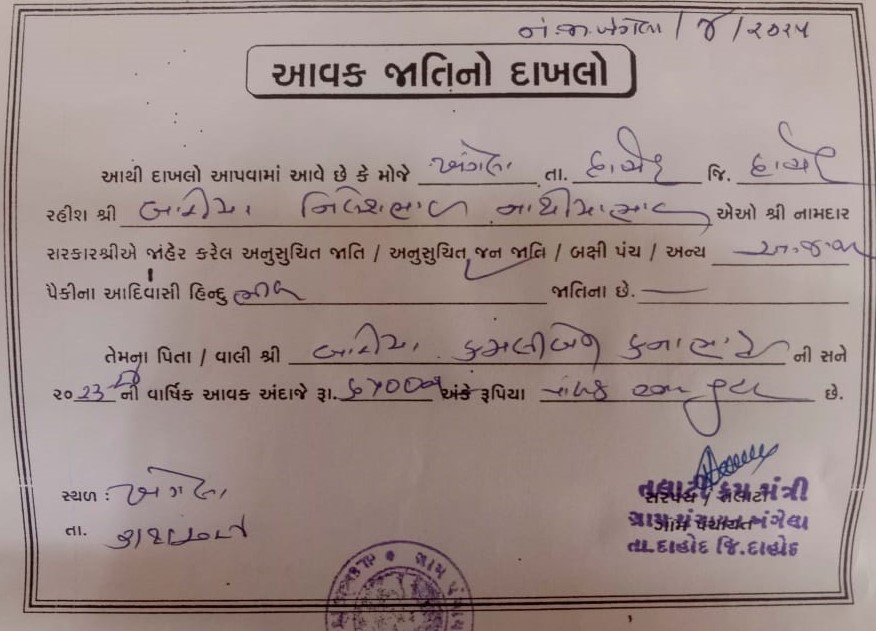 નં.જા.ખંગેલા / જ / ૨૦૨૫
આવક જાતિનો દાખલો
આથી દાખલો આપવામાં આવે છે કે મોજે ખંગેલા તા. દાહોદ જિ. દાહોદ
રહીશ શ્રી બારીયા નિલેશભાઈ નાથીયાભાઈ એઓ શ્રી નામદાર
સરકારશ્રીએ જાહેર કરેલ અનુસુચિત જાતિ / અનુસુચિત જન જાતિ / બક્ષી પંચ / અન્ય અ.જ.જા
પૈકીના આદિવાસી હિન્દુ ભીલ જાતિના છે.
તેમના પિતા / વાલી શ્રી બારીયા કમલીબેન કનાભાઈ ની સને
૨૦૨૩ ની વાર્ષિક આવક અંદાજે રૂા. અંકે રૂપિયા છે.
સ્થળ : ખંગેલા
તા.
સરપંચ / તલાટી
ગ્રામ પંચાયત
તલાટી કમ મંત્રી
ગ્રામ પંચાયત ખંગેલા
તા.દાહોદ જિ.દાહોદ
ગ્રામ પંચાય